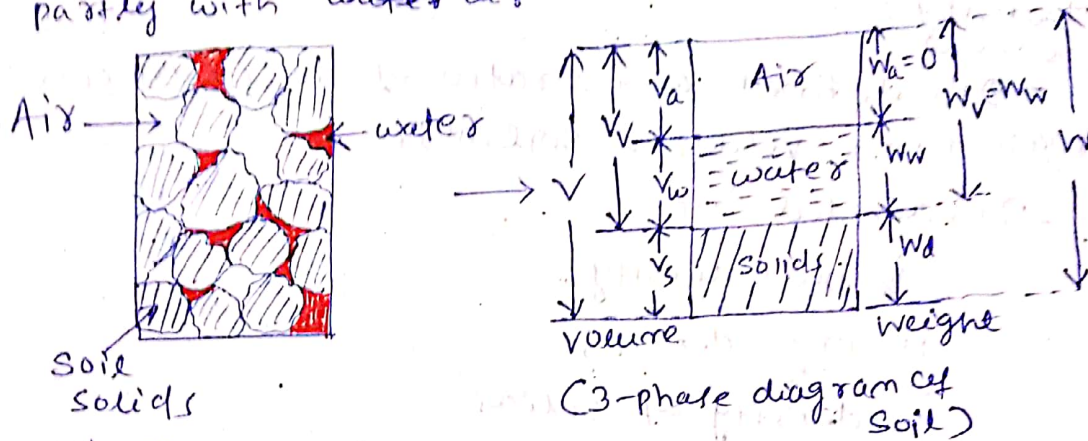 partly with water
Air
water
Soil
Solids
V
Vv
Va
Vw
Vs
Air
water
Solids
Wa=0
Ww
Wd
Wv=Ww
W
Volume
Weight
(3-phase diagram of
Soil)